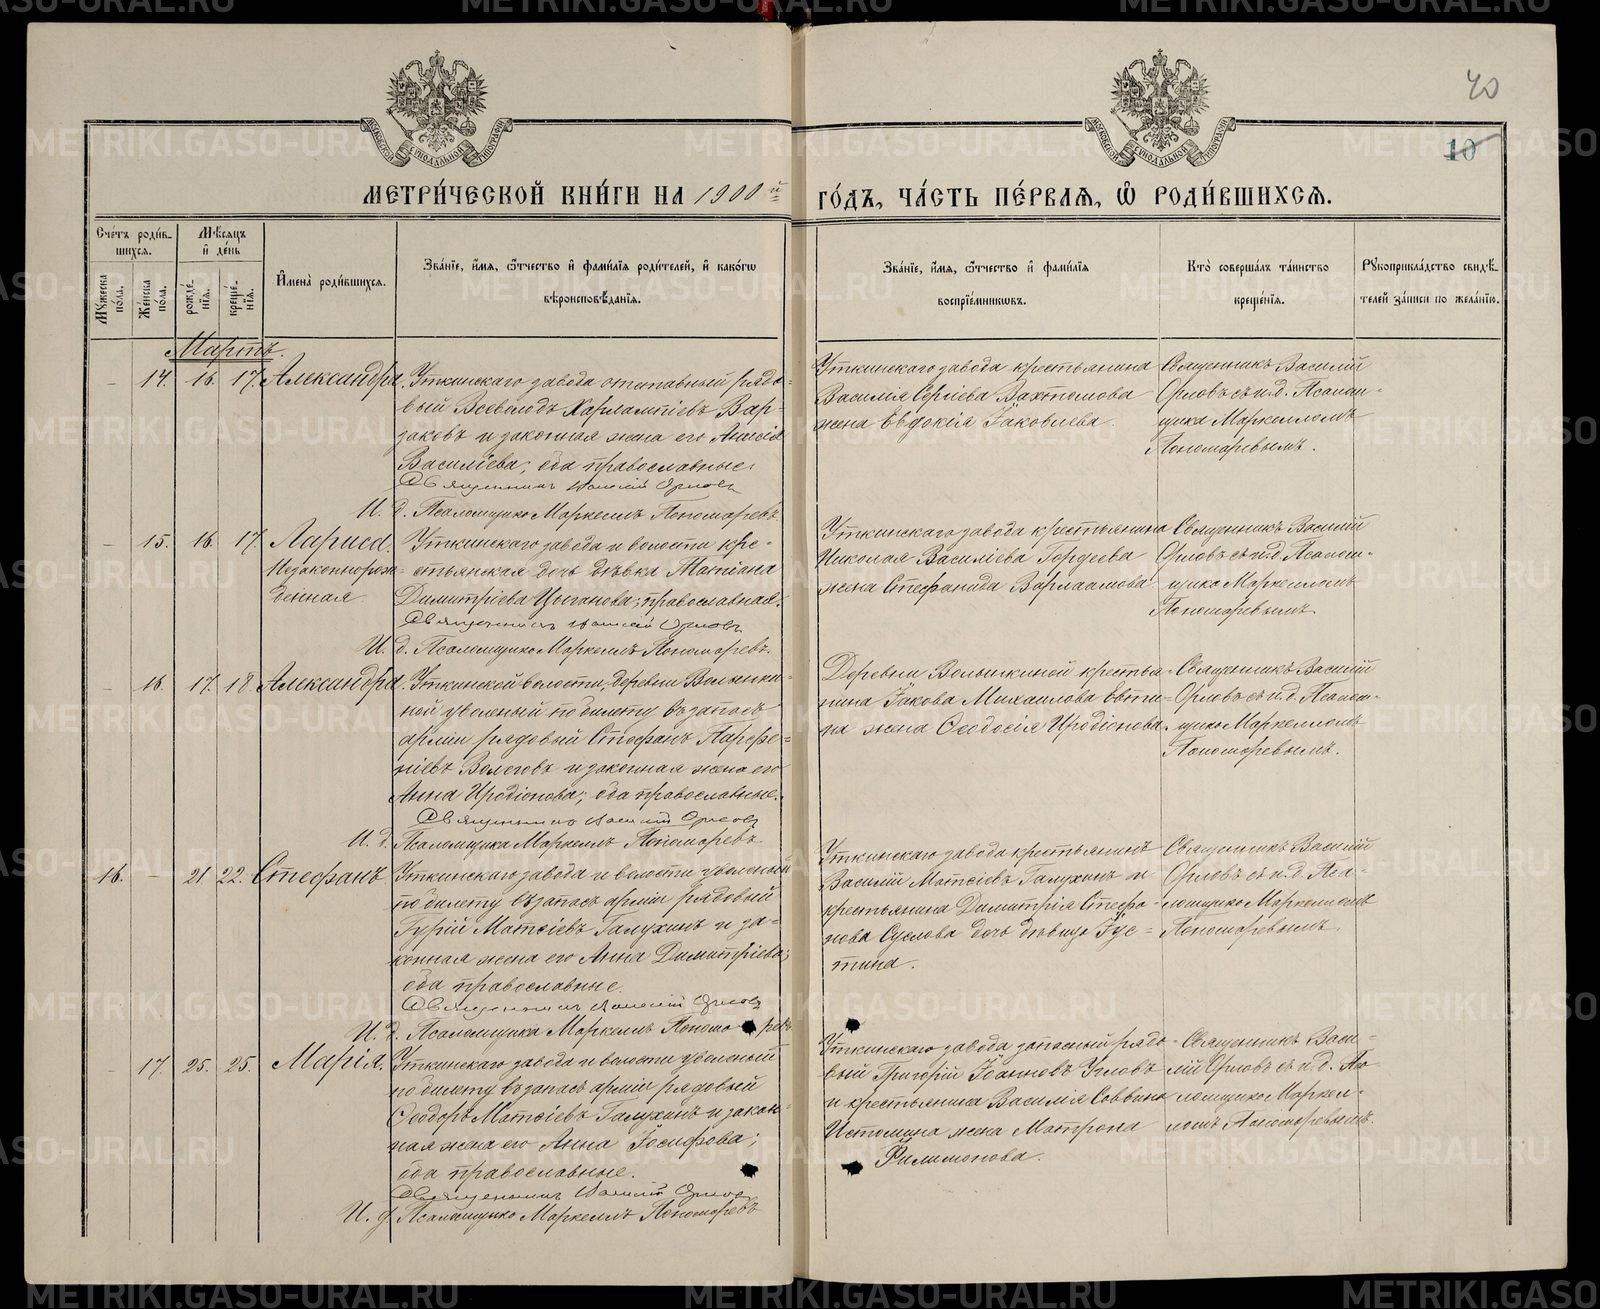 40
10
МОСКОВСКОЙ СУНОДАЛЬНОЙ ТИПОГРАФІИ
МОСКОВСКОЙ СУНОДАЛЬНОЙ ТИПОГРАФІИ
МЕТРИ́ЧЕСКОЙ КНИ́ГИ НА 1900й ГО́ДЪ, ЧА́СТЬ ПЕ́РВАЯ, Ѿ РОДИ́ВШИХСЯ.
Сче́тъ роди́в-
шихся.
Мужеска по́ла.
Же́нска по́ла.
Мѣсяцъ
и де́нь
рожде́-
нія.
креще́-
нія.
Имена̀ роди́вшихся.
Зва́ніе, и́мя, ѻ́тчество и фами́лія роди́телей, и како́гѡ
вѣроисповѣ́данія.
Зва́ніе, и́мя, ѻ́тчество и фами́лія
воспріе́мниковъ.
Кто̀ соверша́лъ та́инство
креще́нія.
Рукоприкла́дство свидѣ́-
телей за́писи по жела́нію.
Мартъ.
– 14. 16. 17. Александра.
Уткинскаго завода отставный рядо-
вый Всеволодъ Харлампіевъ Вар-
заковъ и законная жена его Анисія
Василіева; оба православные.
Священникъ Василій Орловъ
И. д. Псаломщика Маркеллъ Пономаревъ
Уткинскаго завода крестьянина
Василія Сергіева Вахтомова
жена Евдокія Іаковлева.
Священникъ Василій
Орловъ съ и.д. Псалом-
щика Маркелломъ
Пономаревымъ.
– 15. 16. 17. Лариса.
Незаконнорож-
денная
Уткинскаго завода и волости кре-
стьянская дочь дѣвка Татіана
Димитріева Цыганова; православная.
Священникъ Василій Орловъ
И. д. Псаломщика Маркеллъ Пономаревъ.
Уткинскаго завода крестьянина
Николая Василіева Гордеева
жена Стефанида Варлаамова
Священникъ Василій
Орловъ съ и.д. Псалом-
щика Маркелломъ
Пономаревымъ.
– 16. 17. 18 Александра.
Уткинской волости, деревни Волынки-
ной уволеный по билету въ запасъ
арміи рядовый Стефанъ Парфе-
ніевъ Вологовъ и законная жена его
Анна Иродіонова; оба православные.
Священникъ Василій Орловъ
И. д. Псаломщика Маркеллъ Пономаревъ
Деревни Волынкиной крестья-
нина Іакова Михаилова
жена Ѳеодосія Иродіонова.
Священникъ Василій
Орловъ съ и.д. Псалом-
щика Маркелломъ
Пономаревымъ.
16. – 21 22. Стефанъ
Уткинскаго завода и волости уволеный
по билету въ запасъ арміи рядовый
Гурій Матѳіевъ Галухинъ и за-
конная жена его Анна Димитріева;
оба православные.
Священникъ Василій Орловъ
И. д. Псаломщика Маркеллъ Пономаревъ
Уткинскаго завода крестьянинъ
Василій Матѳіевъ Галухинъ и
крестьянина Димитрія Стефа-
нова Суслова дочь дѣвица Іус-
тина.
Священникъ Василій
Орловъ съ и.д. Пса-
ломщика Маркелломъ
Пономаревымъ.
– 17. 25. 25. Марія.
Уткинскаго завода и волости уволеный
по билету въ запасъ арміи рядовый
Ѳеодоръ Матѳіевъ Галухинъ и закон-
ная жена его Анна Іосифова;
оба православные.
Священникъ Василій Орловъ
И. д. Псаломщика Маркеллъ Пономаревъ
Уткинскаго завода запасный рядо-
вый Григорій Іоанновъ Угловъ
и крестьянина Василія Саввина
Истомина жена Матрона
Филимонова.
Священникъ Васи-
лій Орловъ съ и.д. Пса-
ломщика Маркел-
ломъ Пономаревымъ.
METRIKI.GASO-URAL.RU